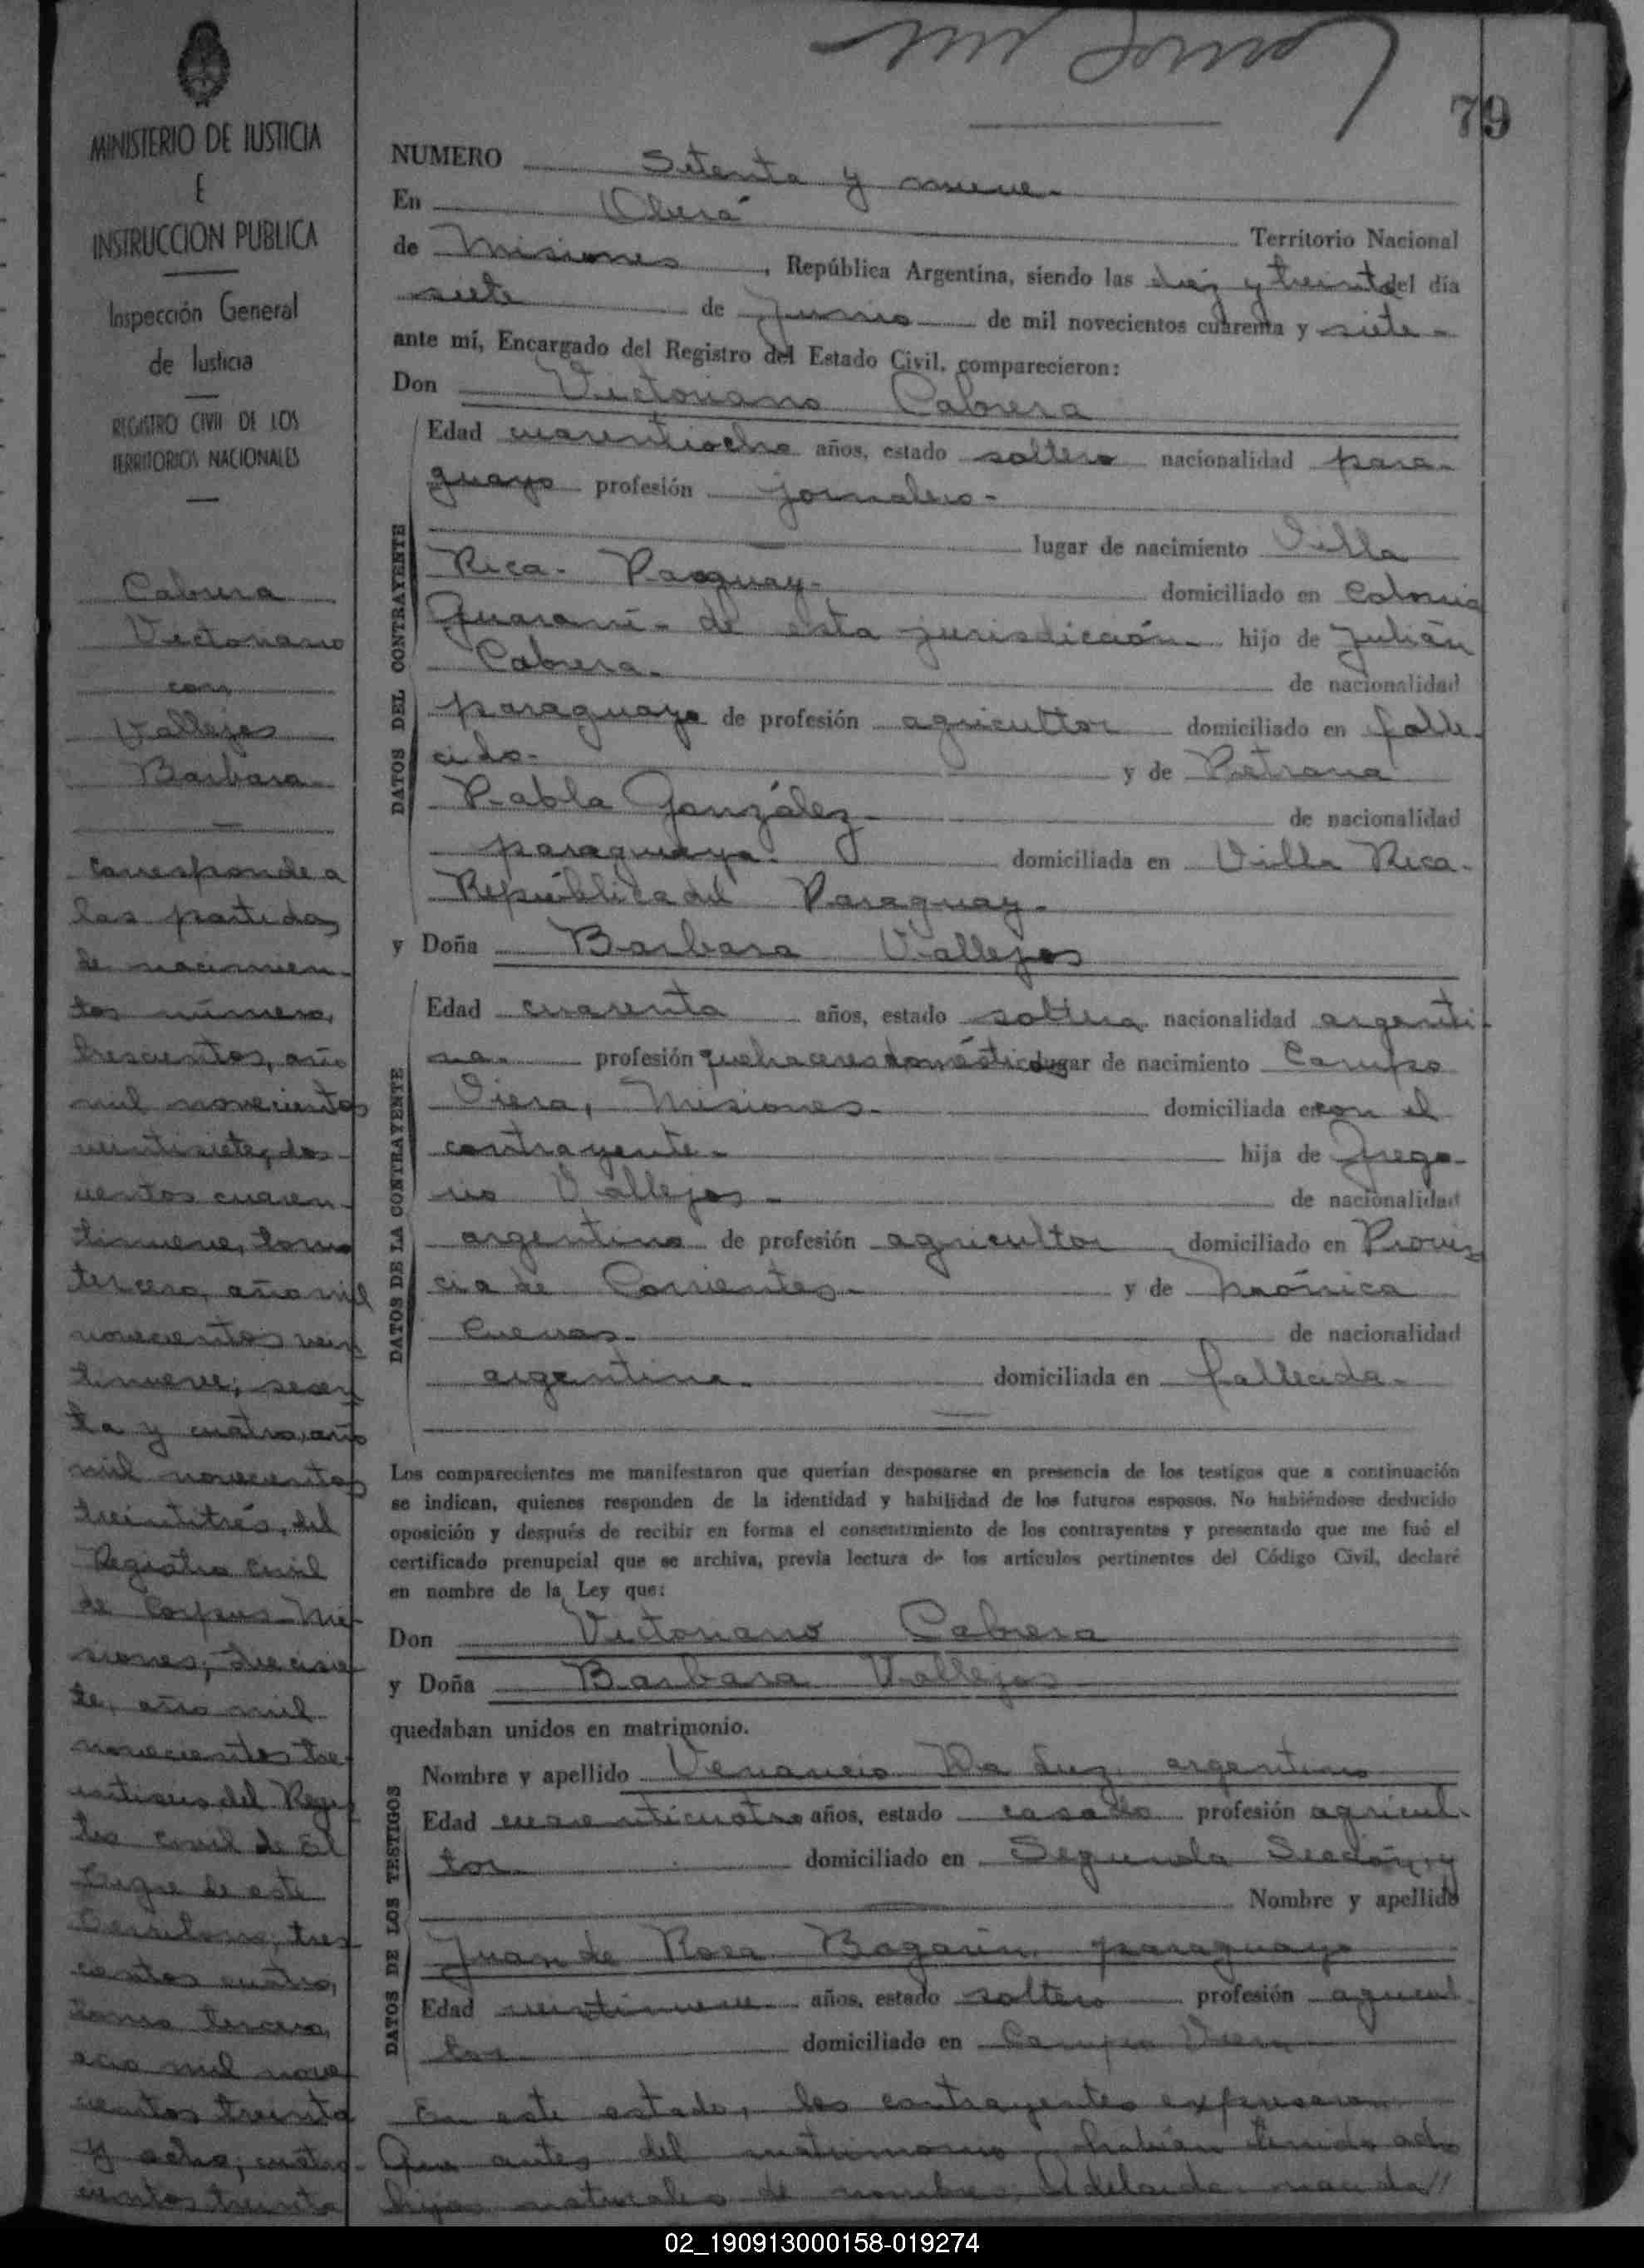 79
MINISTERIO DE JUSTICIA
E
INSTRUCCION PUBLICA
Inspección General
de Justicia
REGISTRO CIVIL DE LOS
TERRITORIOS NACIONALES
Cabrera
Victoriano
con
Vallejos
Barbara
Corresponde a
las partidas
de nacimien-
tos número,
trescientos, año
mil novecientos
veintisiete, dos-
cientos cuaren-
tinueve, tomo
tercero, año mil
novecientos vein
tinueve; sesen
ta y cuatro, año
mil novecientos
treintitrés, del
Registro Civil
de Corpus-Mi-
siones; diecisie
te, año mil
novecientos tre
del Regis
tro civil de El
de este
tres
cientos cuatro,
tomo tercero,
año mil nove
cientos treinta
y ocho; cuatro-
cientos treinta
NUMERO Setenta y nueve.
En Oberá Territorio Nacional
de Misiones, República Argentina, siendo las diez y treinta del día
siete de Junio de mil novecientos cuarenta y siete-
ante mí, Encargado del Registro del Estado Civil, comparecieron:
Don Victoriano Cabrera
DATOS DEL CONTRAYENTE
Edad cuarentiocho años, estado soltero nacionalidad para-
guayo profesión jornalero-
lugar de nacimiento Villa
Rica- Paraguay- domiciliado en Colonia
Guaraní- de esta jurisdicción- hijo de Julián
Cabrera- de nacionalidad
paraguayo de profesión agricultor domiciliado en falle-
cido- y de Petrona
Pabla González- de nacionalidad
paraguaya- domiciliada en Villa Rica-
República del Paraguay-
y Doña Barbara Vallejos
DATOS DE LA CONTRAYENTE
Edad cuarenta años, estado soltera nacionalidad argenti-
na- profesión quehaceres domésticos lugar de nacimiento Campo
Viera, Misiones- domiciliada en con el
contrayente- hija de Grego-
rio Vallejos- de nacionalidad
argentino de profesión agricultor domiciliado en Provin
cia de Corrientes- y de Mónica
Cuevas- de nacionalidad
argentina- domiciliada en fallecida-
Los comparecientes me manifestaron que querían desposarse en presencia de los testigos que a continuación
se indican, quienes responden de la identidad y habilidad de los futuros esposos. No habiéndose deducido
oposición y después de recibir en forma el consentimiento de los contrayentes y presentado que me fué el
certificado prenupcial que se archiva, previa lectura de los artículos pertinentes del Código Civil, declaré
en nombre de la Ley que:
Don Victoriano Cabrera
y Doña Barbara Vallejos
quedaban unidos en matrimonio.
DATOS DE LOS TESTIGOS
Nombre y apellido Venancio Da Luz, argentino
Edad cuarenticuatro años, estado casado profesión agricul-
tor domiciliado en Segunda Sección, y
Nombre y apellido
Juan de Rosa Bogarin, paraguayo
Edad veintinueve años, estado soltero profesión agricul-
tor domiciliado en Campo Viera
En este estado, los contrayentes expresaron
Que antes del matrimonio habían tenido ocho
hijos naturales de nombres: Adelaida, nacida//
02_190913000158-019274